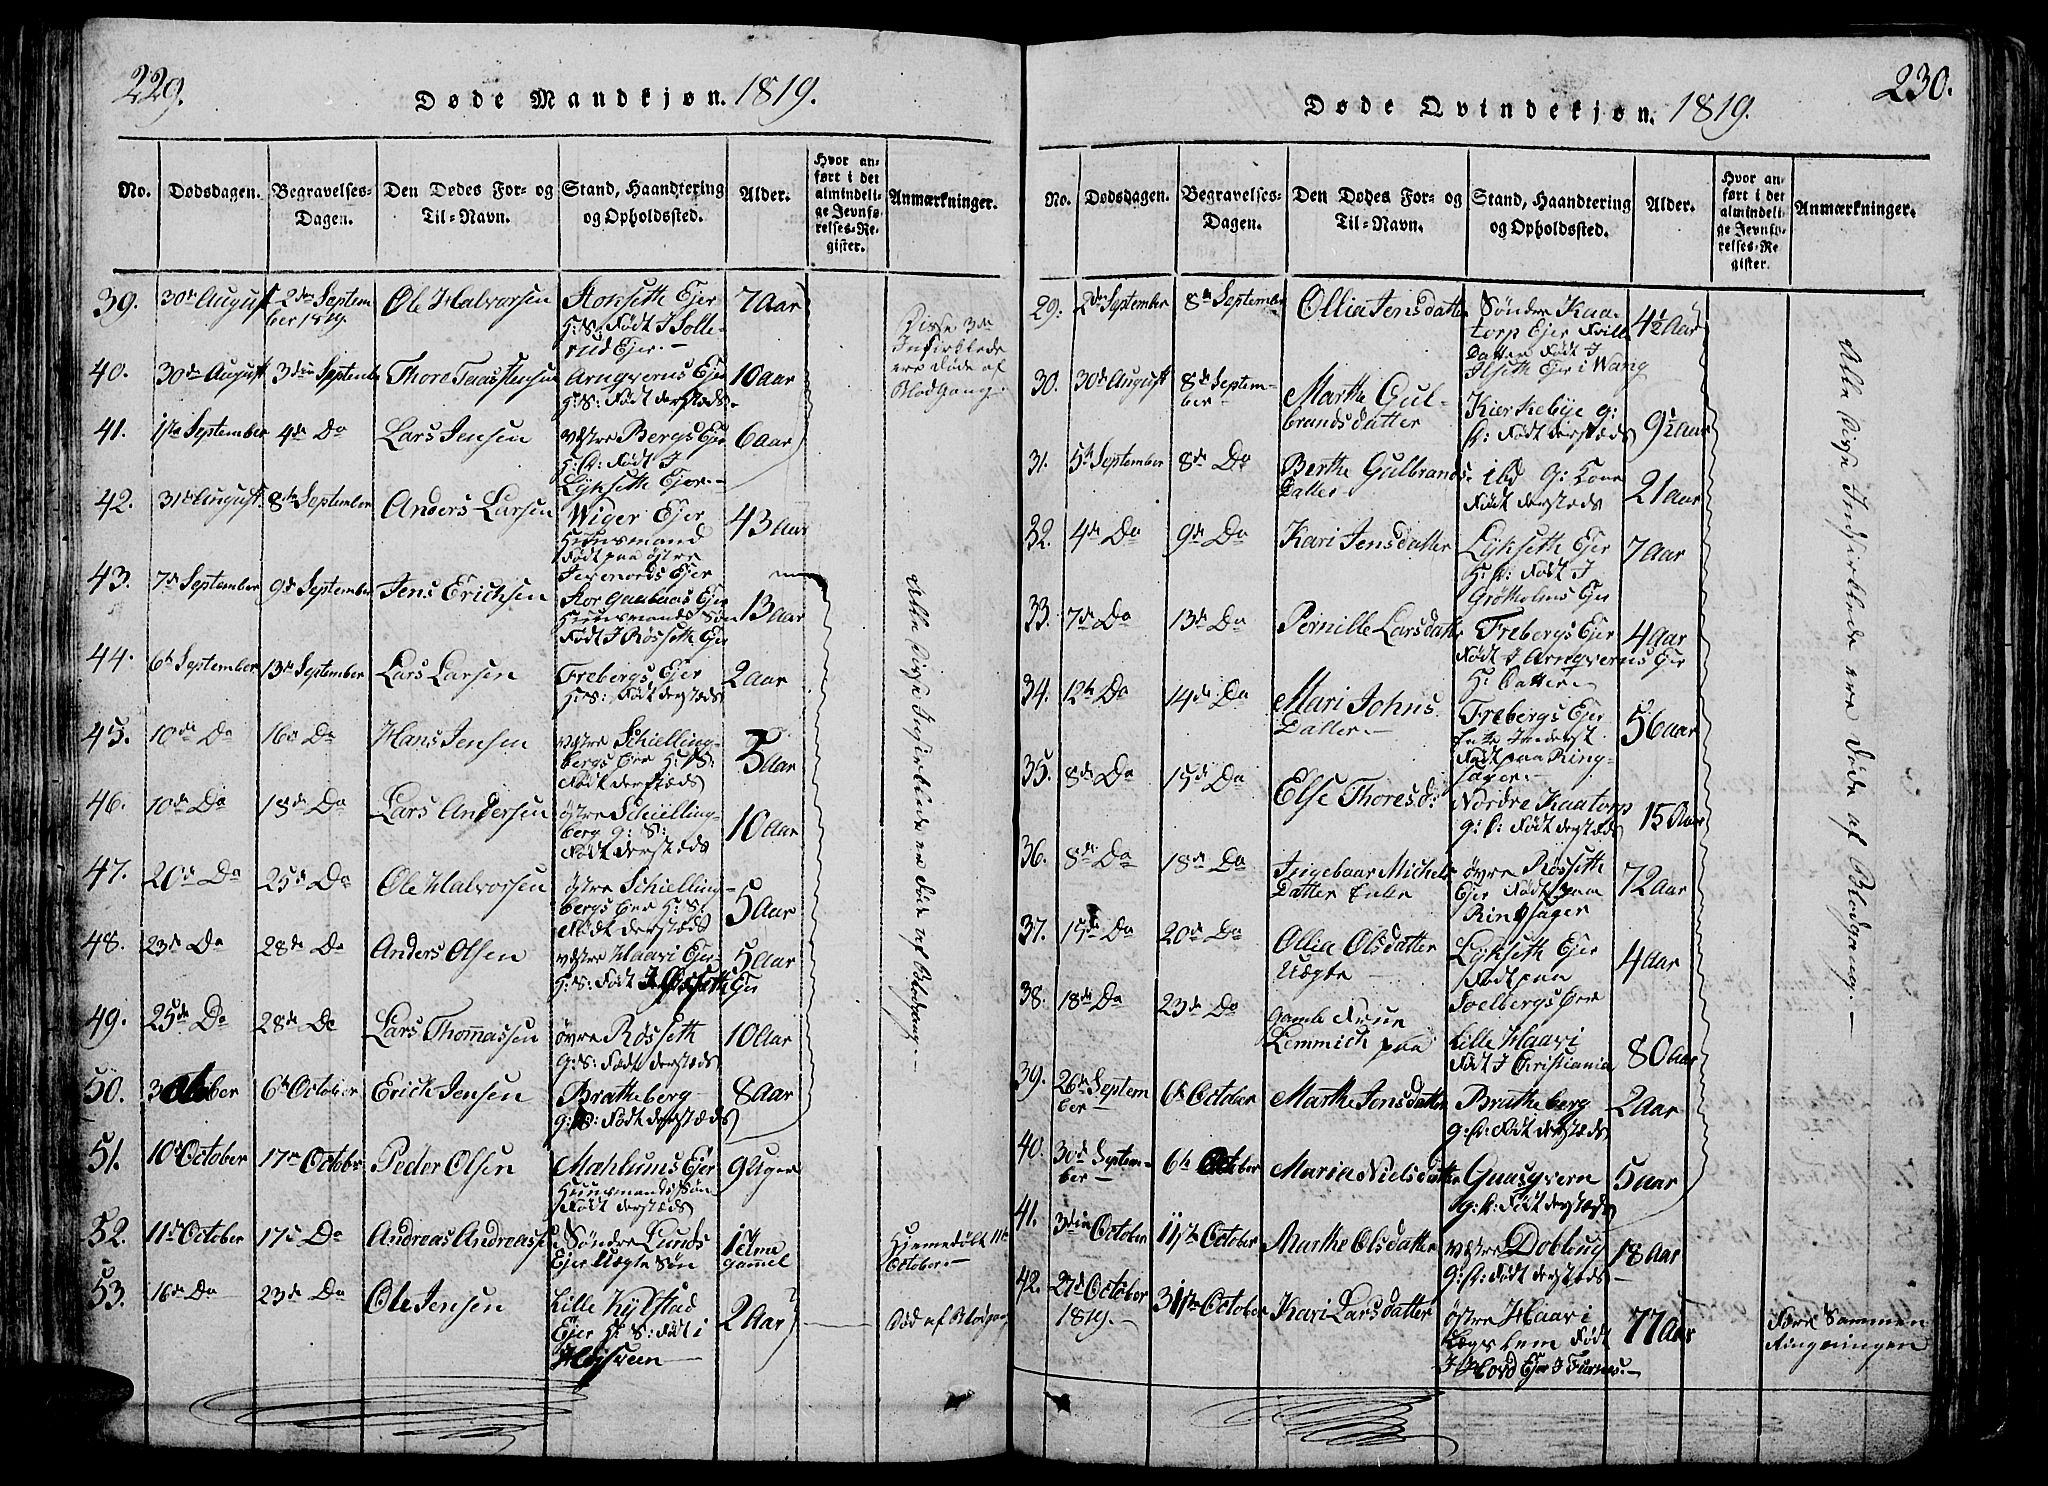 229.
Døde Mandkjøn. 1819.
No. Dødsdagen. Begravelses-Dagen. Den Dødes For- og Til-Navn. Stand, Haandtering og Opholdssted. Alder. Hvor anført i det almindelige Jevnførelses-Register. Anmærkninger.
39. 30de August 2den September 1819. Ole Halvorsen Stenseth Ejer H: S: Født I Solle-rud Ejer. 7 Aar
Disse 3de Indfirklede ere døde af Blodgang.
40. 30de August 3die Septemb Thore Arngverns Ejer H: S: Født dersteds. 10 Aar
41. 1ste September 4de Do Lars Jensen vestre Bergs Ejer H: S: Født I Lykseth Ejer. 6 Aar
42. 31te August. 8de September Anders Larsen Wiger Ejer Huusmand Født paa østre Jevenords Ejer 43 Aar
43. 7de September 9de September Jens Erichsen Huusmands Søn Født I Røsseth Ejer 13 Aar
44. 6te September 13de September Lars Larsen Frebergs Ejer H: S: Født dersteds 2 Aar
45. 10de Do 16de Do Hans Jensen vestre Schiellingbergs Eier H: S: Født dersteds 3 Aar
46. 10de Do 18de Do Lars Andersen østre Schiellingberg g: S: Født dersteds 10 Aar
47. 20de Do 25de Do Ole Halvorsen østre Schiellingbergs Eier H: S: Født dersteds 5 Aar
48. 23de Do 28de Do Anders Olsen vestre Haavi Ejer H: S: Født I Ejer 5 Aar
49. 25de Do 28de Do Lars Thomassen øvre Røsseth g: S: Født dersteds 10 Aar
50. 3 October 6te October Erich Jensen Bratheberg g: S: Født dersteds 8 Aar
Alle disse Indfirklede ere døde af Blodgang.
51. 10de October 17de October Peder Olsen Mæhlums Ejer Huusmands Søn Født dersteds 9 Uger
52. 11te October 17de Do Andreas Andreasse Søndre Lunds Ejer Uægte Søn 1 Time gammel
Hjemedøbt 11te October.
53. 16de Do 23de Do Ole Jensen Lille Kylstad Ejer H: S: Født i 2 Aar
Død af Blodgang
230.
Døde Qvindekjøn. 1819.
No. Dødsdagen. Begravelses-Dagen. Den Dødes For- og Til-Navn. Stand, Haandtering og Opholdssted. Alder. Hvor anført i det almindelige Jevnførelses-Register. Anmærkninger.
29. 2den September 8de September Ollia Jensdatter Søndre Kaatorp Ejer Datter Født I Ilseth Ejer i Wang 4½ Aar
30. 30de August 8de September Marthe Gulbrandsdatter Kierkebye g: D: Født dersteds 9½ Aar
31. 5te September 8de Do Berthe Gulbrands Datter g: Kone Født dersteds 21 Aar
32. 4de Do 9de Do Kari Jensdatter Lykseth Ejer H: D: Født I Grøtholms Ejer 7 Aar
33. 7de Do 13de Do Pernille Larsdatter Frebergs Ejer Født I Arngverns Ejer H: Datter 4 Aar
34. 12te Do 14de Do Mari Johns Datter Frebergs Ejer Enke Inderst. Født paa Ringsager. 56 Aar
35. 8de Do 15de Do Else Thoresd: Nordre Kaatorp g: D: Født dersteds 15 Aar
36. 8de Do 18de Do Ingebaar Michels Datter Enke øvre Røsseth Ejer Født paa Ringsager 72 Aar
37. 15de Do 20de Do Ollia Olsdatter Uægte Lykseth Ejer Født paa Soelbergs Eier 4 Aar
38. 18de Do 23de Do gamle Frue Lemmich paa Lille Haavi Født I Christiania 80 Aar
39. 26de September 6te October Marthe Jensdatter Bratheberg g: D: Født dersteds 2 Aar
40. 30de September 6te October Maria Nielsdatter Gaasqvern g: D: Født dersteds 5 Aar
Alle disse Indfirklede ere døde af Blodgang.
41. 3die October 11te October Marthe Olsdatter vestre Doblong g: D: Født dersteds 18 Aar
42. 27de October 1819. 31te October Kari Larsdatter østre Haavi Lægs Lem Født I Hovd Ejer I Furnes. 77 Aar